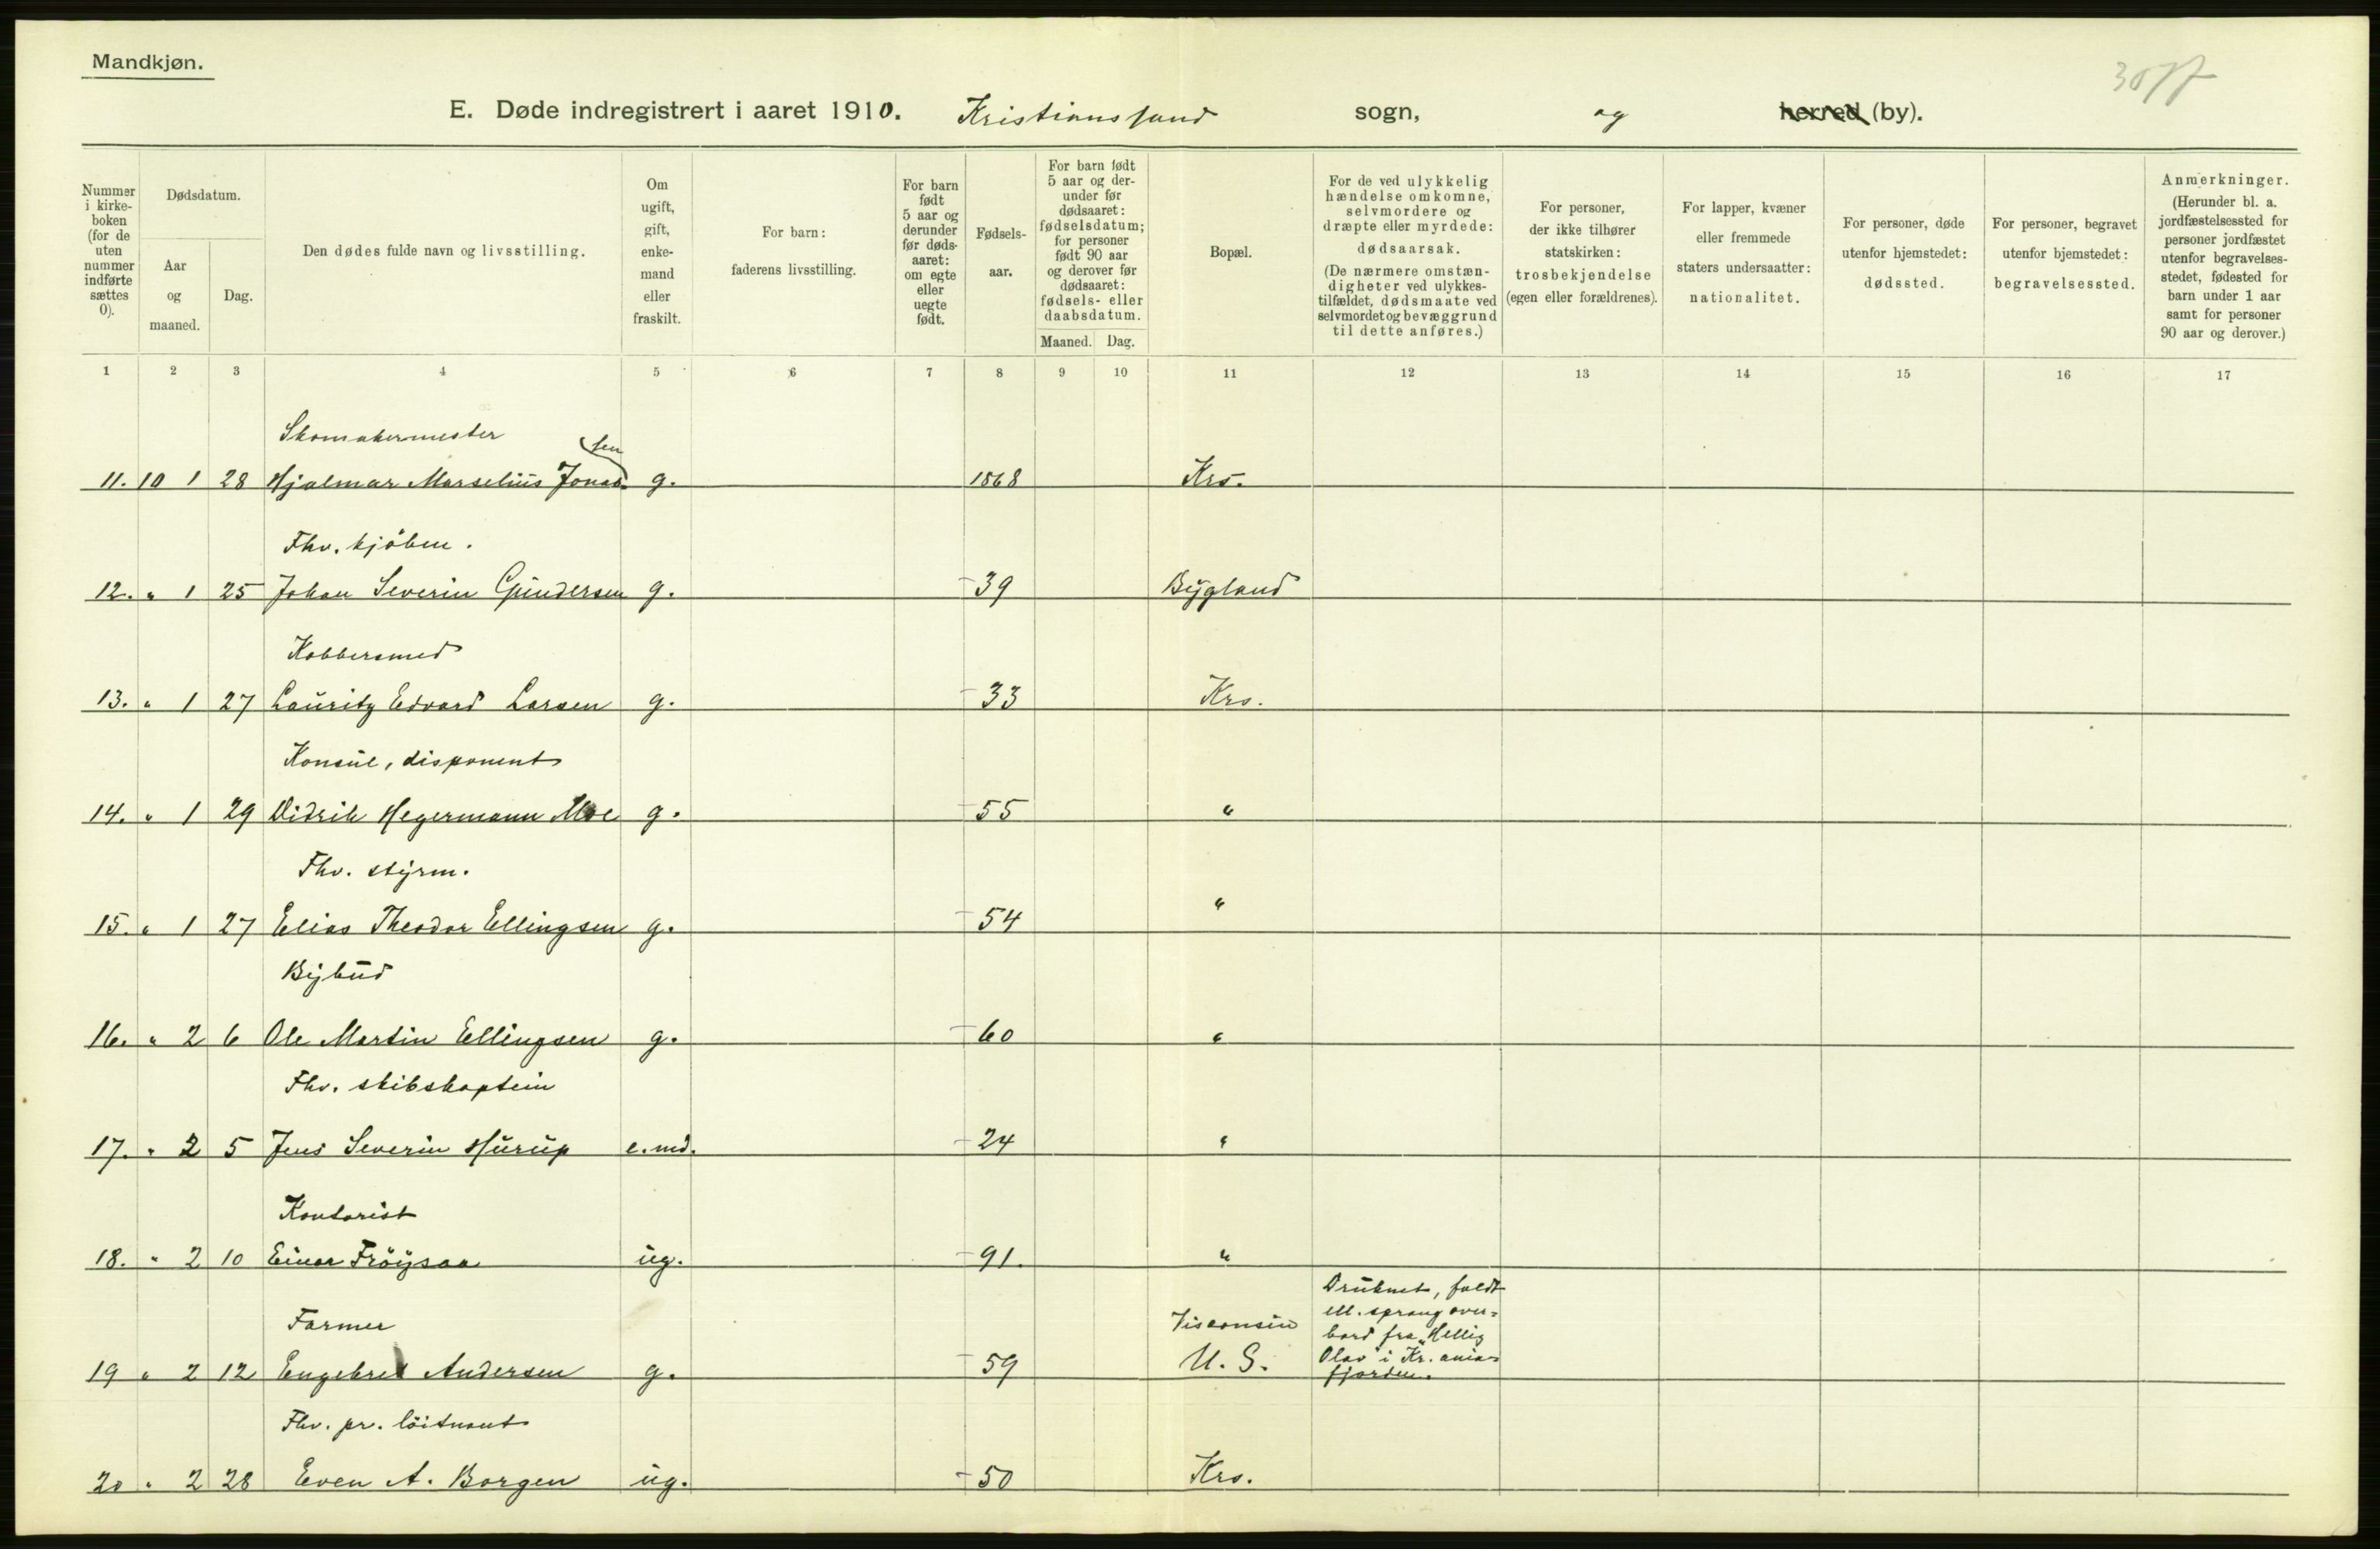 Mandkjøn.
E. Døde indregistrert i aaret 1910. Kristianssand sogn, og herred (by).
Nummer i kirke-boken (for de uten nummer indførte sættes 0).
Dødsdatum.
Aar og maaned.
Dag.
Den dødes fulde navn og livsstilling.
Om ugift, gift, enke-mand eller fraskilt.
For barn: faderens livsstilling.
For barn født 5 aar og derunder før døds-aaret: om egte eller uegte født.
Fødsels-aar.
For barn født 5 aar og der-under før dødsaaret: fødselsdatum; for personer født 90 aar og derover før dødsaaret: fødsels- eller daabsdatum.
Maaned. Dag.
Bopæl.
For de ved ulykkelig hændelse omkomne, selvmordere og dræpte eller myrdede: dødsaarsak. (De nærmere omstæn-digheter ved ulykkes-tilfældet, dødsmaate ved selvmordet og bevæggrund til dette anføres.)
For personer, der ikke tilhører statskirken: trosbekjendelse (egen eller forældrenes).
For lapper, kvæner eller fremmede staters undersaatter: nationalitet.
For personer, døde utenfor hjemstedet: dødssted.
For personer, begravet utenfor hjemstedet: begravelsessted.
Anmerkninger. (Herunder bl. a. jordfæstelsessted for personer jordfæstet utenfor begravelses-stedet, fødested for barn under 1 aar samt for personer 90 aar og derover.)
1 2 3 4 5 6 7 8 9 10 11 12 13 14 15 16 17
Skomakermester
sen
11. 10 1 28 Hjalmar Marselius Jonas g. 1868 Krs.
Fhv. kjöbm.
12. " 1 25 Johan Severin Gundersen g. -39 Bygland
Kobbersmed
13. " 1 27 Lauritz Edvard Larsen g. -33 Krs.
Konsul, disponent
14. " 1 29 Didrik Hegermann Moe g. -55 "
Fhv. styrm.
15. " 1 27 Elias Theodor Ellingsen g. -54 "
Bybud
16. " 2 6 Ole Martin Ellingsen g. -60 "
Fhv. skibskaptein
17. " 2 5 Jens Severin Hurup e.md. -24 "
Kontorist
18. " 2 10 Einar Fröysaa ug. -91. "
Druknet, faldt
ell. sprang over-
Farmer Visconsin bord fra "Hellig
19 " 2 12 Engebret Andersen g. -59 U. S. Olav" i Kr.ania-
fjorden.
Fhv. pr. löitnant
20 " 2 28 Even A. Borgen ug. -50 Krs.